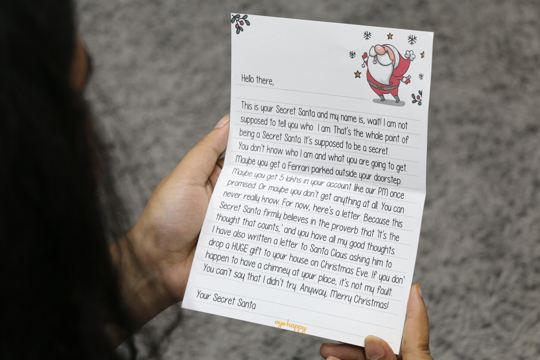 Hello there,
This is your Secret Santa and my name is, wait! I am not
supposed to tell you who I am. That's the whole point of
being a Secret Santa. It's supposed to be a secret.
You don't know who I am and what you are going to get.
Maybe you get a Ferrari parked outside your doorstep.
Maybe you get 5 lakhs in your account like our PM once
promised. Or maybe you don't get anything at all. You can
never really know. For now, here's a letter. Because this
Secret Santa firmly believes in the proverb that 'It's the
thought that counts,' and you have all my good thoughts.
I have also written a letter to Santa Claus asking him to
drop a HUGE gift to your house on Christmas Eve. If you don'
happen to have a chimney at your place, it's not my fault.
You can't say that I didn't try. Anyway, Merry Christmas!
Your Secret Santa